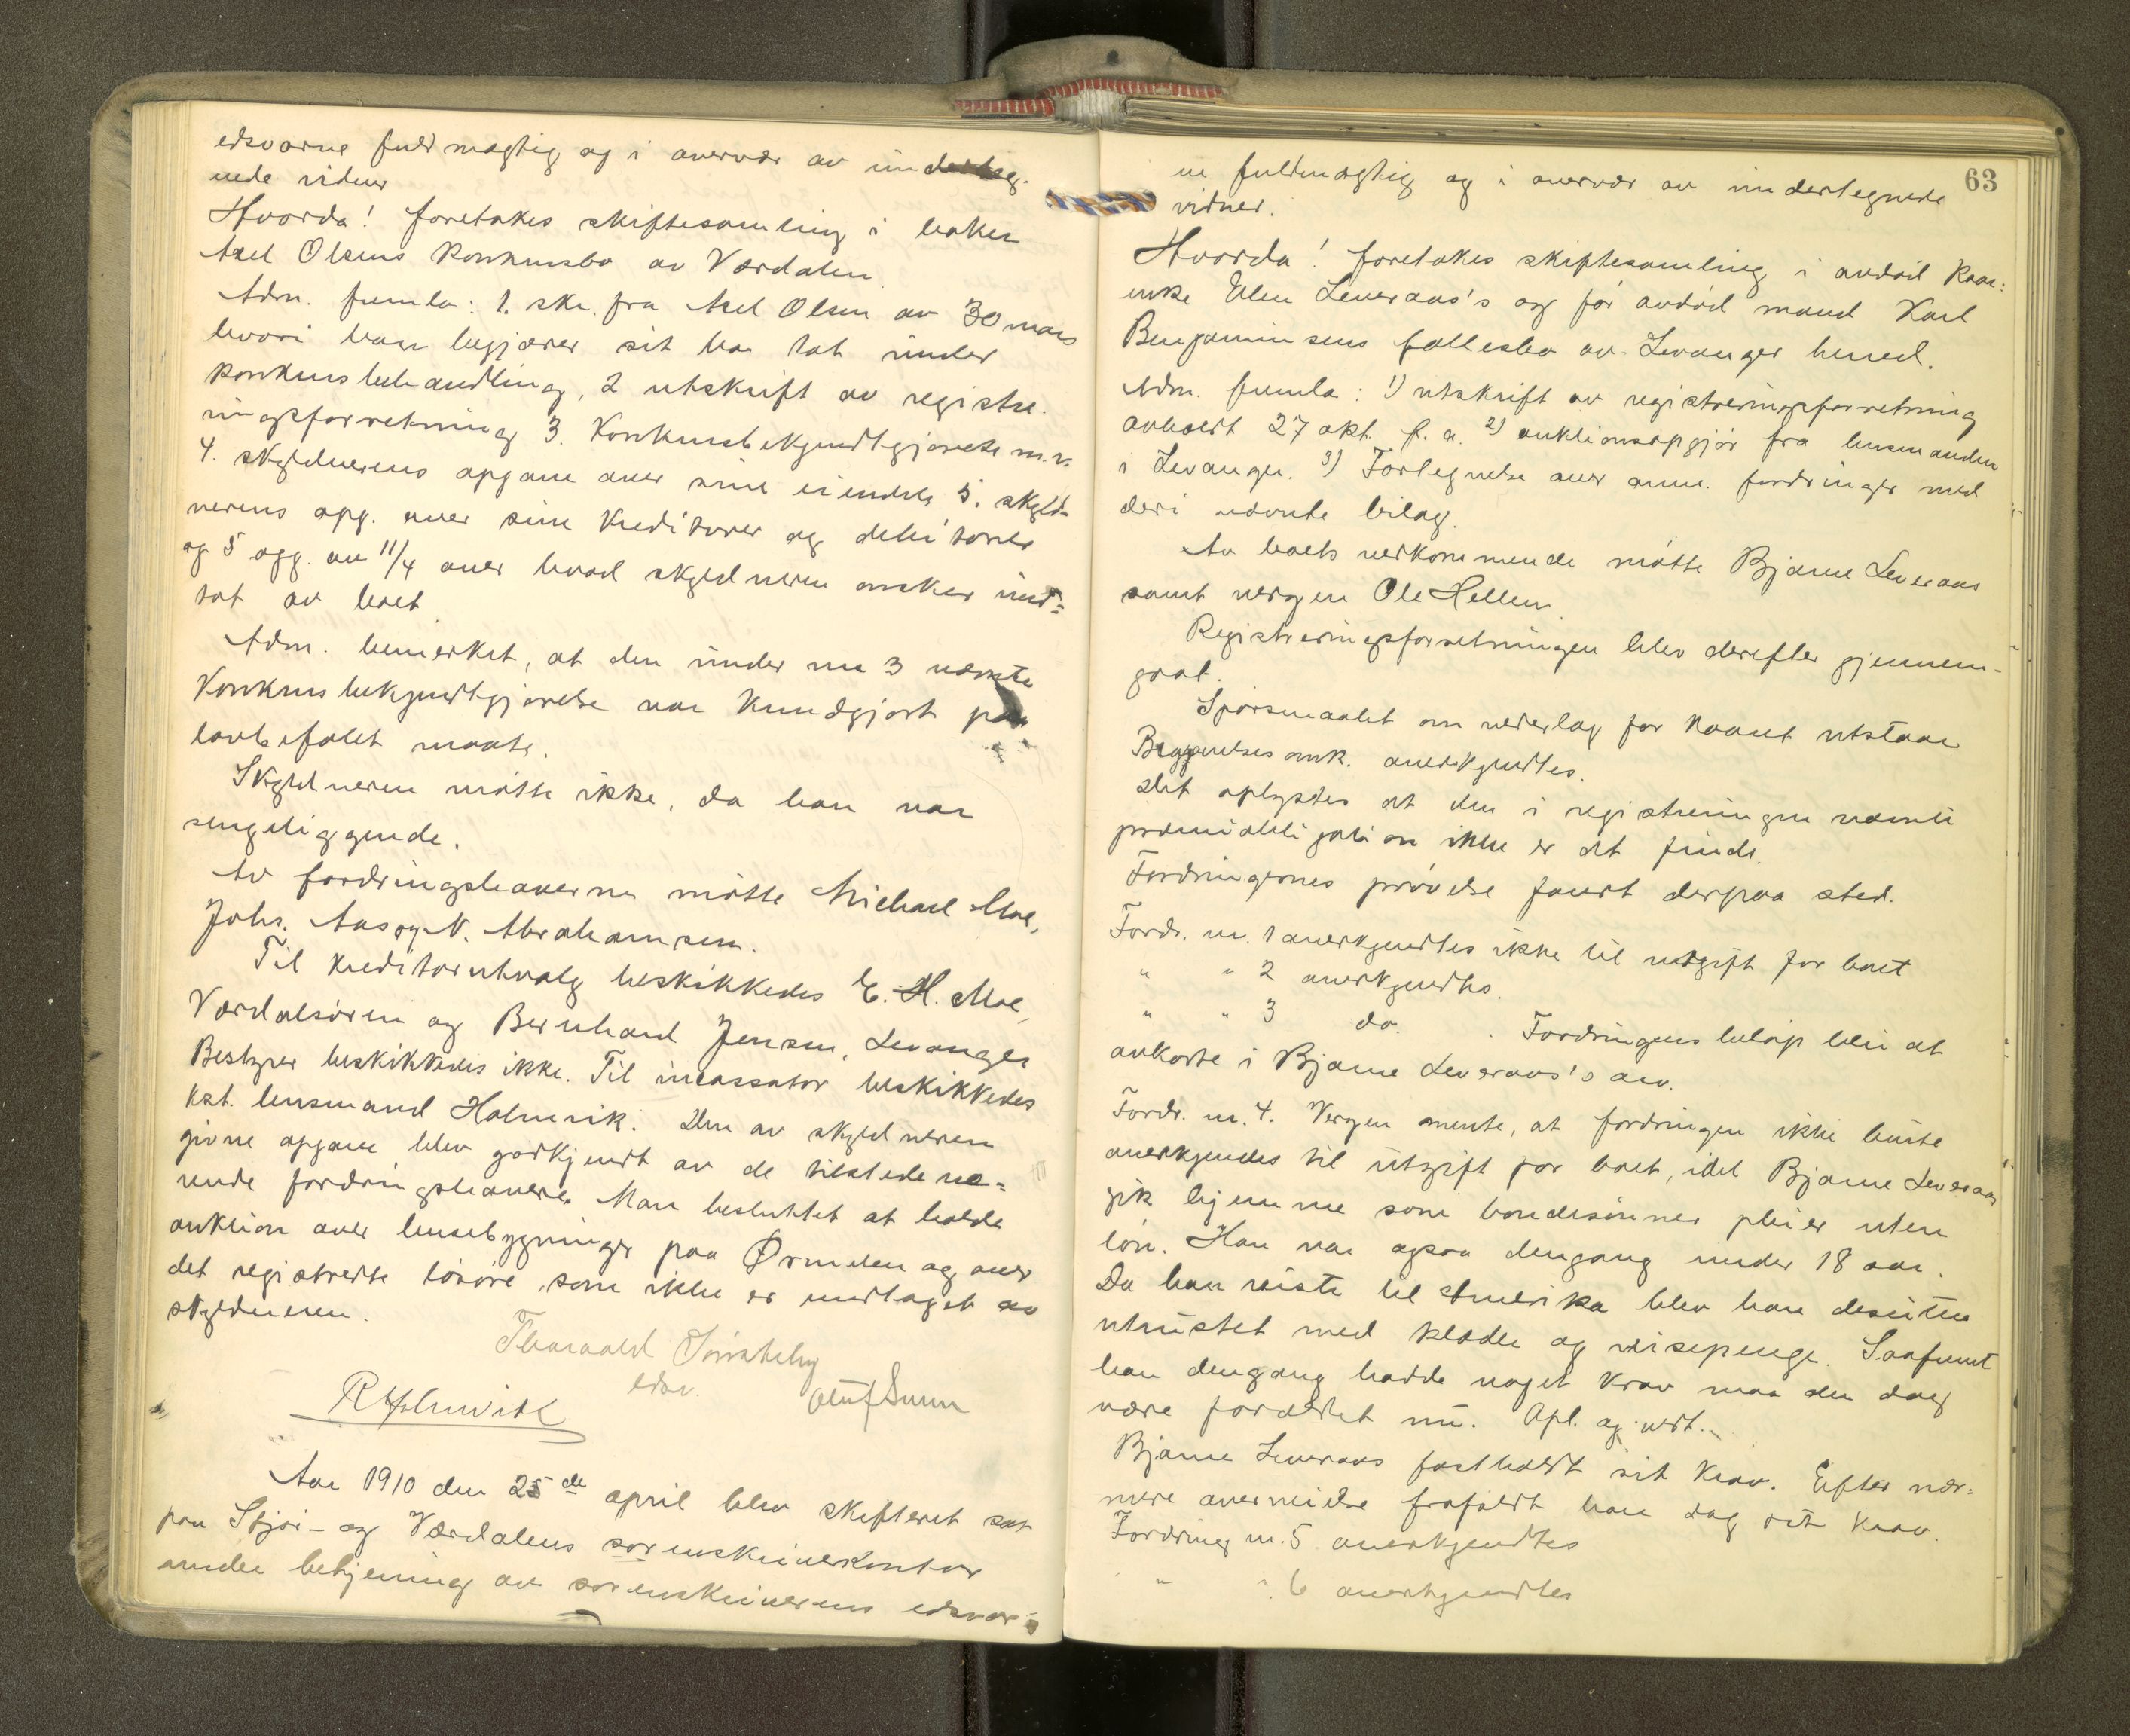 edsvorne fuldmægtig og i overvær av underteg-
nede vidner
Hvorda! foretokes skiftesamling i baker
Axel Olsens konkursbo av Værdalen.
Adm. fremla: 1. skr. fra Axel Olsen av 30 mars
hvori han begjærer sit bo tat under
konkursbehandling, 2 utskrift av registre-
ringsforretning 3. Konkursbekjendtgjørelse m.v.
4. skyldnerens opgave over sine eiendele 5. skyld-
nerens opg. over sine kreditorer og debitorer
og 5 opg. av 11/4 over hvad skyldneren ønsker und=
tat av boet
Adm. bemerket, at den under nr 3 nævnte
Konkursbekjendtgjørelse var kundgjort paa
lovbefalet maate.
Skyldneren møtte ikke, da han var
sengeliggende.
Av fordringshaverne møtte Michael Moe,
Johs. Aas og N. Abrahamsen.
Til kreditorutvalg beskikkedes E. H. Moe,
Værdalsøren og Bernhard Jensen, Levanger
Bestyrer beskikkedes ikke. Til incassator beskikkedes
kst. lensmand Holmvik. Den av skyldneren
givne opgave blev godkjendt av de tilstedevæ=
rende fordringshavere. Man besluttet at holde
auktion over husebygninger paa Ørmelen og over
det registrerte løsøre, som ikke er undtaget av
skyldneren.
Thorvald
edsv.
Oluf Suul
R Schmidt
Aar 1910 den 25de april blev skifteret sat
paa Stjør- og Værdalens sorenskriverkontor
under betjening av sorenskriverens edsvor=
63
ne fuldmægtig og i overvær av undertegnede
vidner.
Hvorda! foretokes skiftesamling i avdød Kaar=
enke Elen Leveraas's og før avdød mand Karl
Benjaminsens fællesbo av Levanger herred.
Adm. fremla: 1) utskrift av registreringsforretning
avholdt 27 okt. f. a. 2) auktionsopgjør fra lensmanden
i Levanger. 3) Fortegnelse over anm. fordringer med
deri nævnte bilag.
Av boets vedkommende møtte Bjarne Leveraas
samt vergen Ole Hellem
Registreringsforretningen blev derefter gjennem-
gaat.
Spørsmaalet om vederlag for kaaret utstaar
Begravelsesomk. anerkjendtes.
Det oplystes at den i registreringen nævnte
præmieobligation ikke er at finde.
Fordringernes prøvelse fandt derpaa sted.
Fordr. nr. 1 anerkjendtes ikke til utgift for boet
" " 2 anerkjendtes.
" " 3 do. . Fordringens beløp blir at
avkorte i Bjarne Leveraas's arv.
Fordr. nr. 4. Vergen mente, at fordringen ikke burte
anerkjendes til utgift for boet, idet Bjarne Leveraas
gik hjemme som bondesønner pleier uten
løn. Han var ogsaa dengang under 18 aar.
Da han reiste til Amerika blev han desuten
utrustet med klæder og reisepenge. Saafremt
han dengang hadde noget krav maa den dog
være forældet nu. Opl. og vedt.
Bjarne Leveraas fastholdt sit krav. Efter nær=
mere overveielse frafaldt han dog sit krav.
Fordring nr. 5 anerkjendtes
" " 6 anerkjendtes